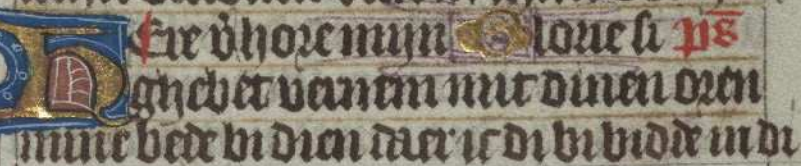 HEre v̾hore mijn Glorie si ps̄
ghebet vernem mit dinen oren
mine bede bi dien daer ic di bi bidde in di